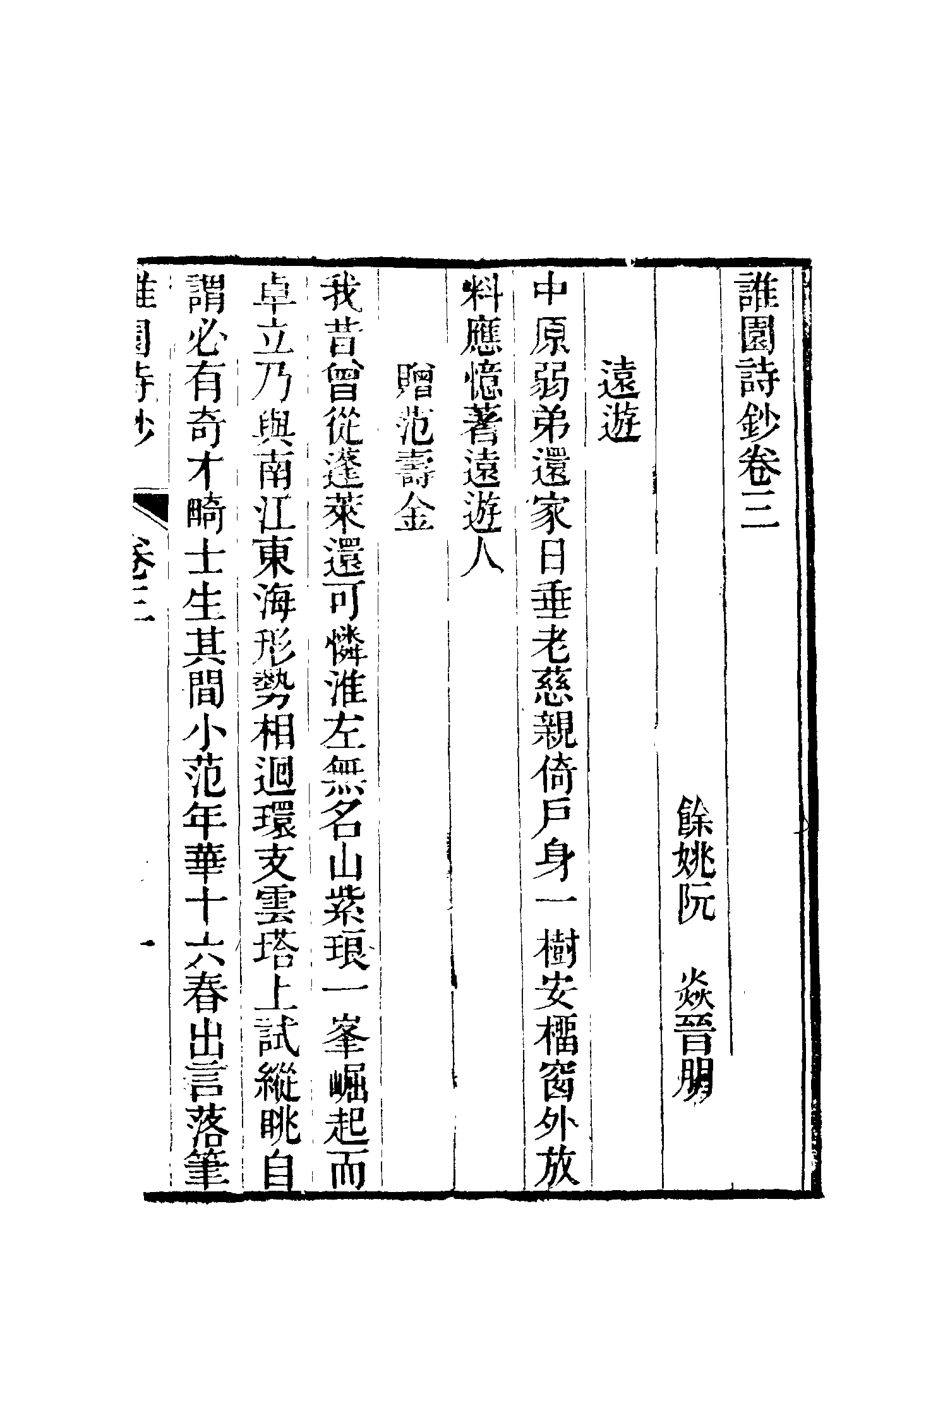 誰園詩鈔卷三
餘姚阮　焱晉朋
遠遊
中原弱弟還家日垂老慈親倚戶身一樹安櫺窗外放
料應憶著遠遊人
贈范壽金
我昔曾從蓬萊還可憐淮左無名山紫琅一峯崛起而
卓立乃與南江東海形勢相迴環支雲塔上試縱眺自
謂必有奇才畸士生其間小范年華十六春出言落筆
誰園詩鈔　卷三　一